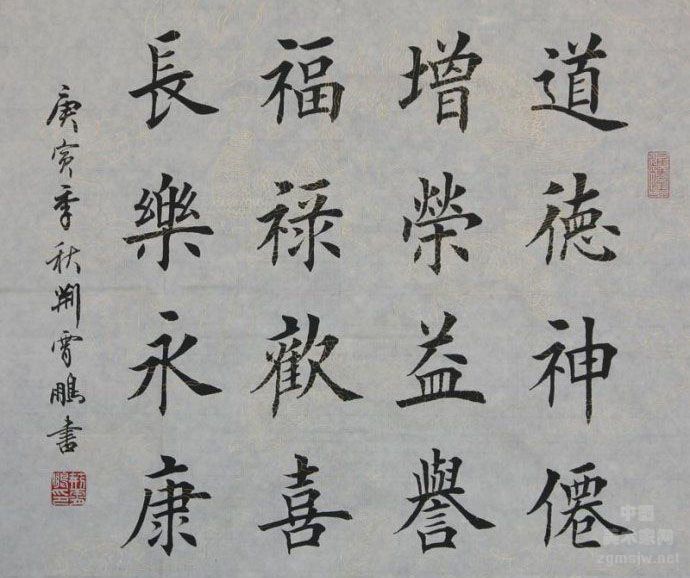 道德神僊
增榮益譽
福祿歡喜
長樂永康
庚寅季秋荆霄鵬書
中国
美术家网
zgmsjw.net